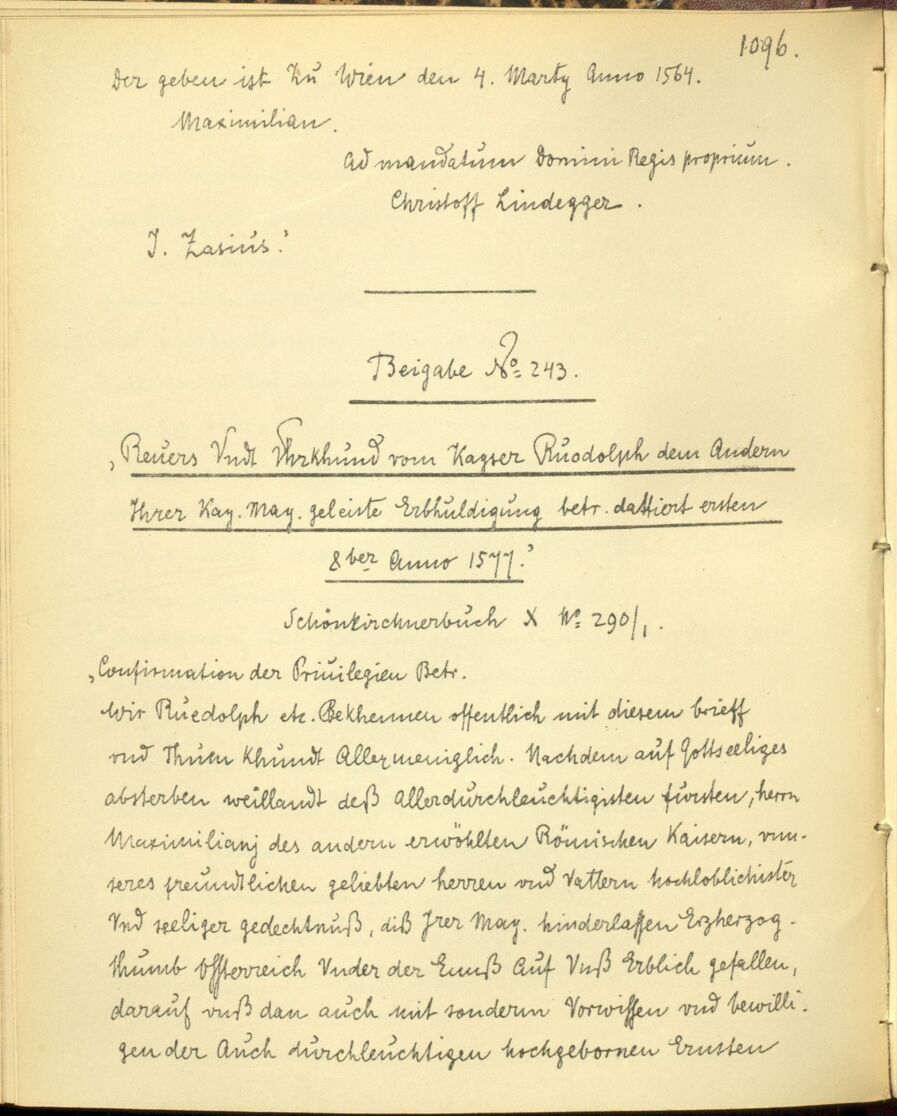 1096.
Der geben ist Zu Wien den 4. Marty Anno 1564.
Maximilian.
Ad mandatum Domini Regis proprium.
Christoff Lindegger.
J. Zasius.'
Beigabe No= 243.
'Reuers Vndt Vhrkhund vom Kayser Ruodolph dem Andern
Ihrer Kay. May. geleiste Erbhuldigung betr. dattiert ersten
8ber Anno 1577.'
Schönkirchnerbuch X No= 290/1.
'Confirmation der Priuilegien Betr.
Wir Ruedolph etc. Bekhennen offentlich mit diesem brieff
vnd Thuen Khundt Allermeniglich. Nachdem auf Gottseeliges
absterben weillandt deß Allerdurchleuchtigisten fürsten, herrn
Maximilianj des andern erwöhlten Römischen Kaisern, vnn-
seres freundtlichen geliebten herren vnd Vattern hochloblichister
Vnd seeliger gedechtnuß, diß Irer May. hinderlassen Erzherzog-
thumb Össterreich Vnder der Ennß Auf Vnß Erblich gefallen,
darauf vnß dan auch mit sondern Vorwissen vnd bewilli-
gen der Auch durchleuchtigen hochgebornen Ernsten